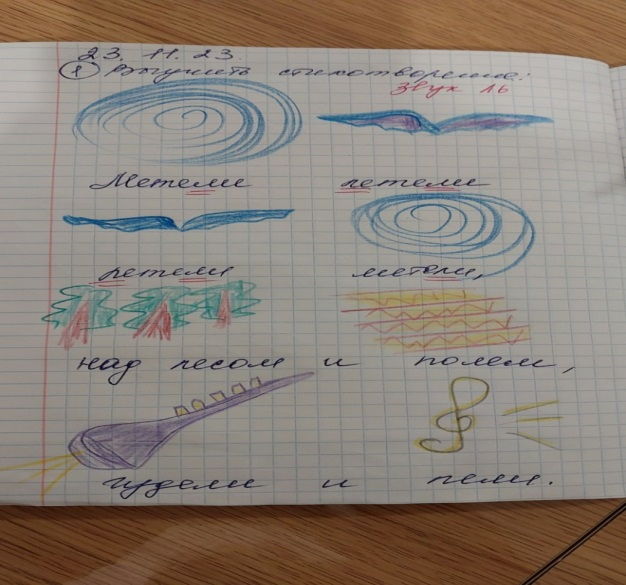 23. 11. 23.
1 Выучить стихотворение:
звук ль
Метели летели
летели метели,
над лесом и полем,
гудели и пели.